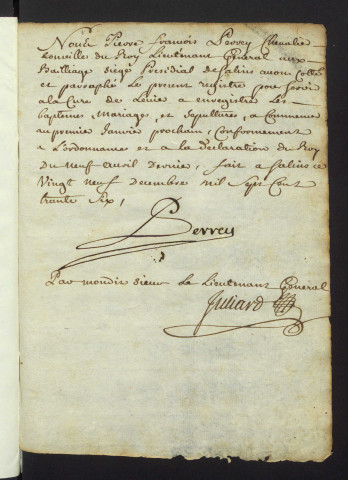 Nous Pierre François Perrey Chevalier
Conseille du Roy Lieutenant General aux
Bailliage siege Presidial de Salins avons Cotté
et paraphé Le present registre pour servir
a la Cure de a enregistre Les
baptemes, Mariages, et sepultures, a Commence
au premier Janvie prochain, Conformement
a L'ordonnance et a la Declaration du Roy
du neuf avril dernie, fait a Salins ce
Vingt neuf Decembre mil Sept Cent
trante Six,
Perrey
Par mondit sieur Le Lieutenant General
Juliard